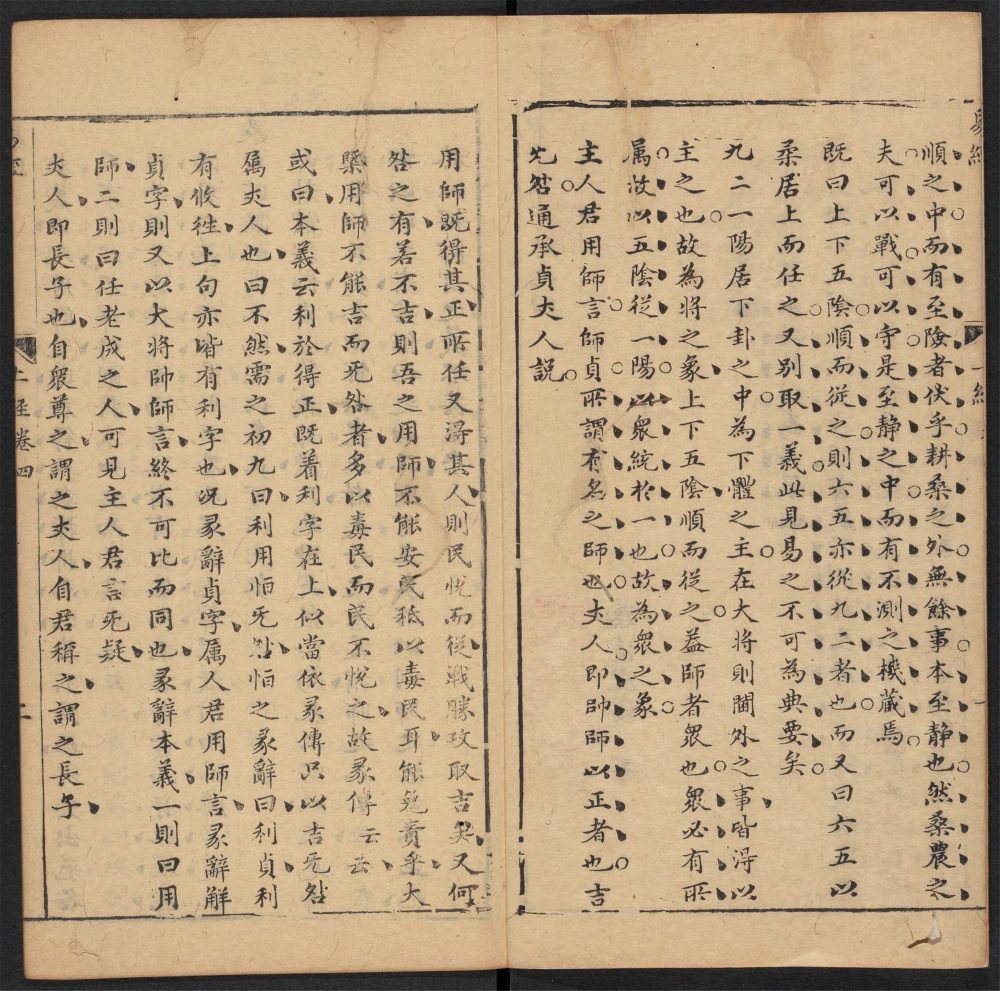 易經
一經
一
順之中而有至險者伏乎耕桑之外無餘事本至静也然桑農之
夫可以戰可以守是至静之中而有不測之機藏焉
既曰上下五陰順而從之則六五亦從九二者也而又曰六五以
柔居上而任之又別取一義此見易之不可為典要矣
九二一陽居下卦之中為下體之主在大將則閫外之事皆淂以
主之也故為將之象上下五陰順而從之益師者眾也眾必有所
属故以五陰從一陽以眾統於一也故為眾之象
主人君用師言師貞所謂有名之師也丈人即帥師以正者也吉
旡咎通承貞丈人説
用師既得其正所任又淂其人則民悅而從戰勝攻取吉矣又何
咎之有若不吉則吾之用師不能安民秪以毒民耳能免責乎大
槩用師不能吉而旡咎者多以毒民而民不悅之故彖傳云云
或曰本義云利於得正既着利字在上似當依彖傳只以吉旡咎
属丈人也曰不然需之初九曰利用恒旡咎恒之彖辭曰利貞利
有攸徃上句亦皆有利字也况彖辭貞字属人君用師言彖辭解
貞字則又以大將帥師言終不可比而同也彖辭本義一則曰用
師二則曰任老成之人可見主人君言旡疑
丈人即長子也自眾尊之謂之丈人自君稱之謂之長子
上經卷四
二